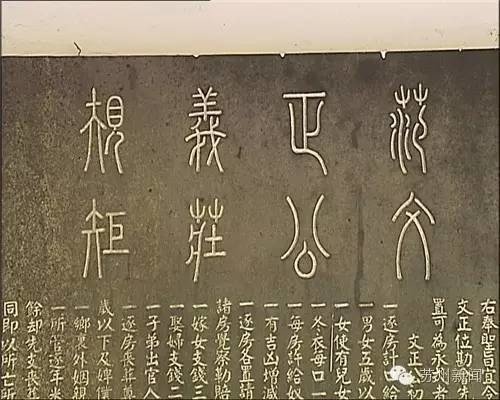 范文
正公
義莊
規矩
右奉聖旨宜令
文正位勒先
置可為永者
文正公初
一逐房計口給
一男女五歲以
一女使有兒女
一冬衣每口一
一每房許給奴
一有吉凶增減
一逐房各置請
諸房覺察勒賠
一嫁女支錢三
一娶婦支錢二
一子弟出官人
一逐房喪葬尊
歲以下及婢僕
一鄉里外姻親
一所管逐年米
餘却先支喪葬
同即以所亡所
苏州新闻